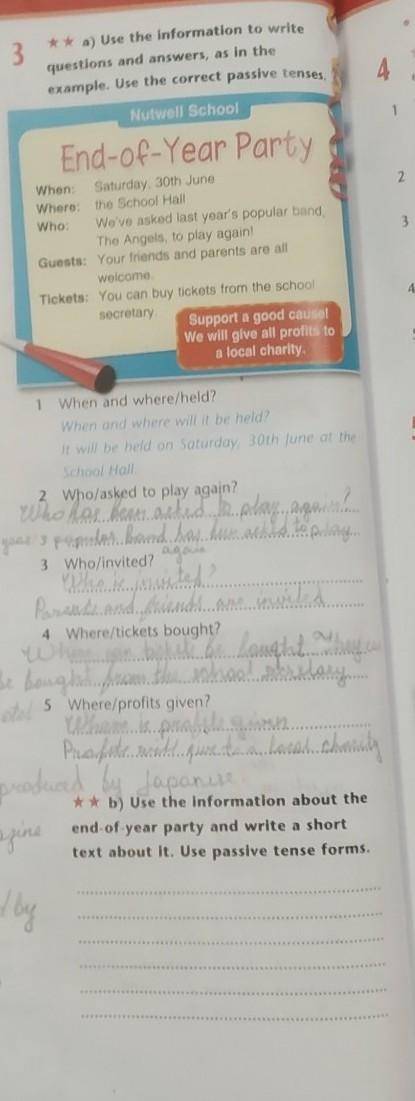 3 ★★ a) Use the information to write
questions and answers, as in the
example. Use the correct passive tenses.
4
Nutwell School
End-of-Year Party
When: Saturday, 30th June
Where: the School Hall
Who: We've asked last year's popular band,
The Angels, to play again!
Guests: Your friends and parents are all
welcome.
Tickets: You can buy tickets from the school
secretary.
Support a good cause!
We will give all profits to
a local charity.
1
2
3
4
1 When and where/held?
When and where will it be held?
It will be held on Saturday, 30th June at the
School Hall.
2 Who/asked to play again?
Who has been asked to play again?
year's popular band has been asked to play
again
3 Who/invited?
Who is invited?
Parents and friends are invited
4 Where/tickets bought?
Where can tickets be bought They
be bought from the school secretary
5 Where/profits given?
Where is profits given
Profits will give to a local charity
produced by Japanese
★★ b) Use the information about the
end-of-year party and write a short
text about it. Use passive tense forms.
by